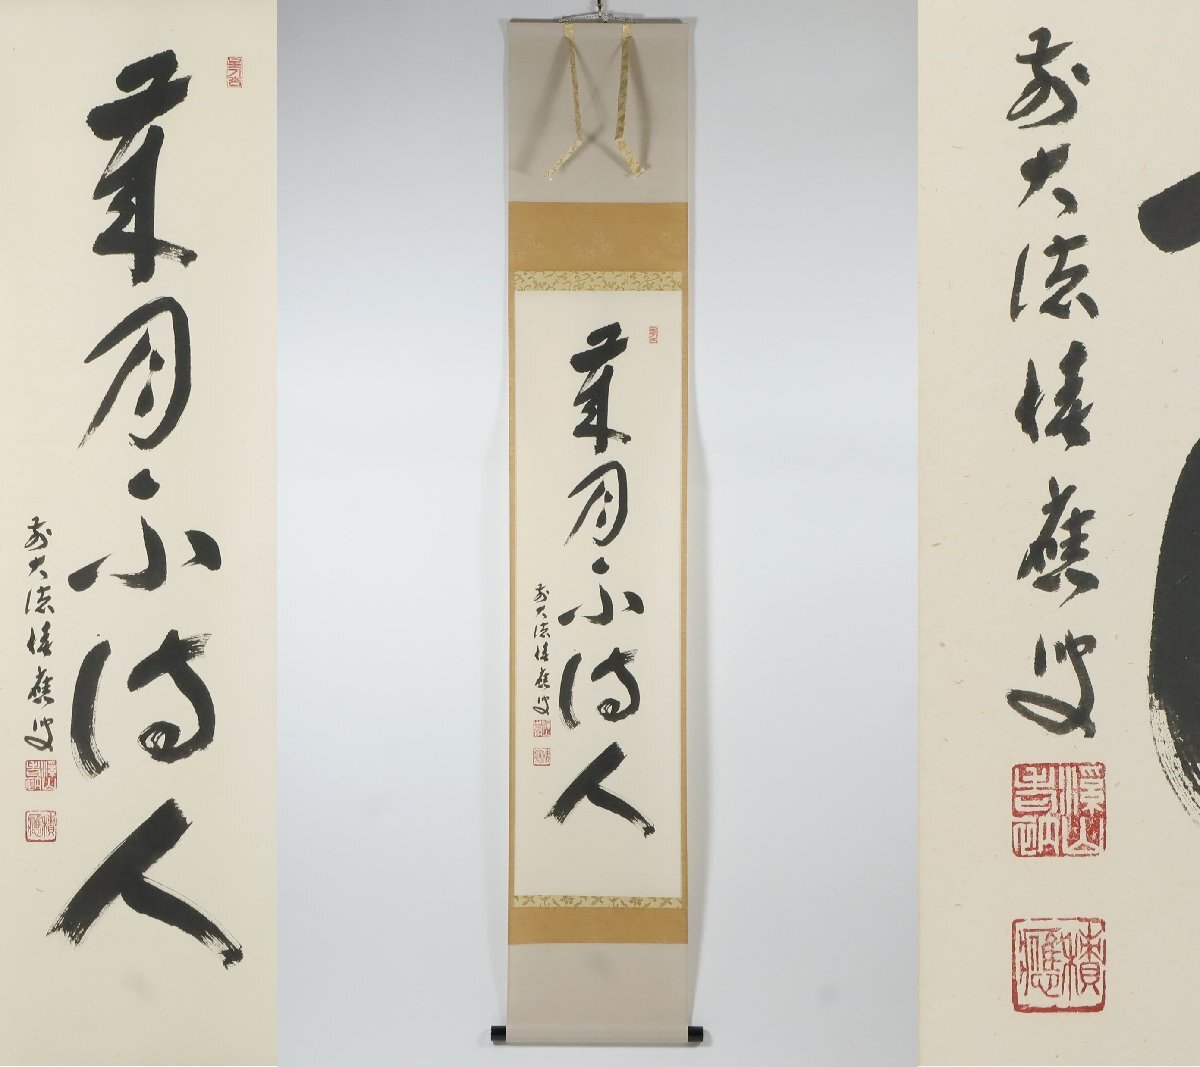 歳月不待人
前大徳積應叟
積應
歳月不待人
前大徳積應叟
積應
前大徳積應叟
積應